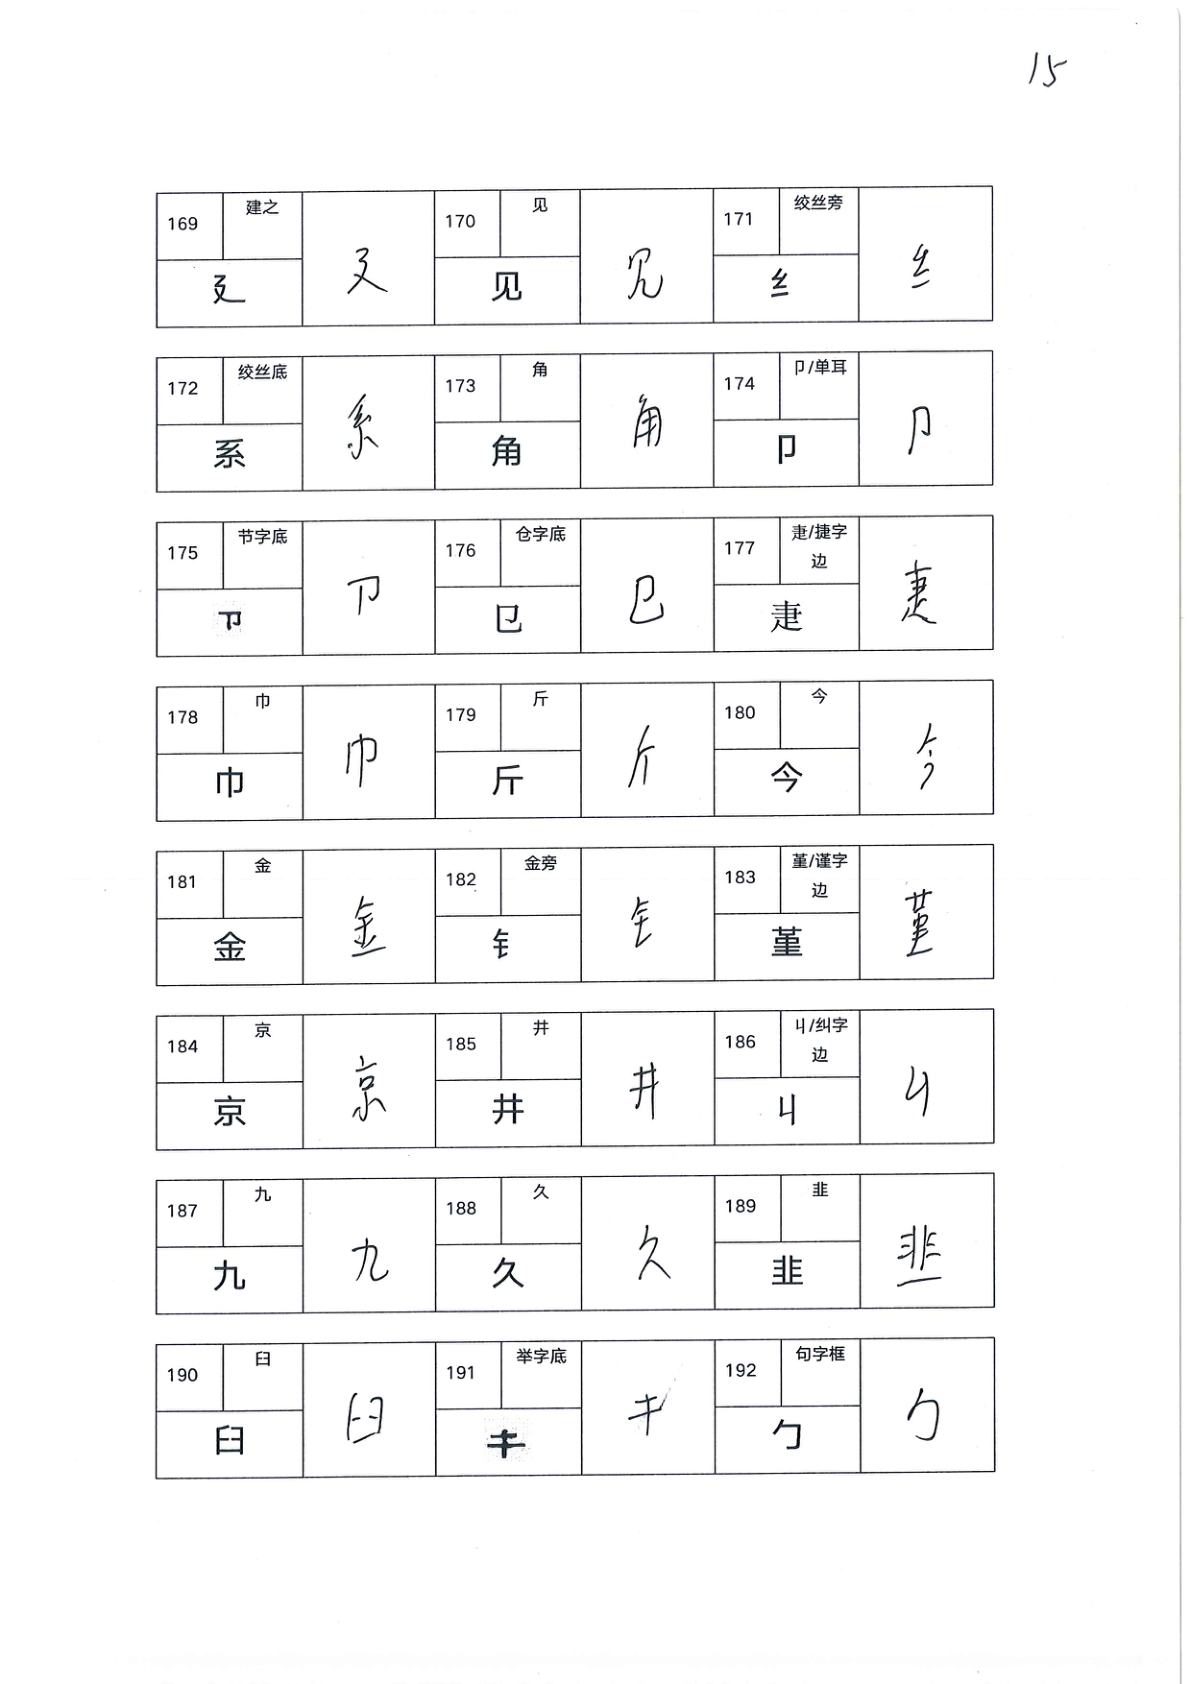 15
169 建之 廴 廴 170 见 见 见 171 绞丝旁 纟 纟
172 绞丝底 系 系 173 角 角 角 174 卩/单耳 卩 卩
175 节字底 卩 卩 176 仓字底 㔾 㔾 177 疌/捷字边 疌 疌
178 巾 巾 巾 179 斤 斤 斤 180 今 今 今
181 金 金 金 182 金旁 钅 钅 183 堇/谨字边 堇 堇
184 京 京 京 185 井 井 井 186 丩/纠字边 丩 丩
187 九 九 九 188 久 久 久 189 韭 韭 韭
190 臼 臼 臼 191 举字底 キ キ 192 句字框 勹 勹